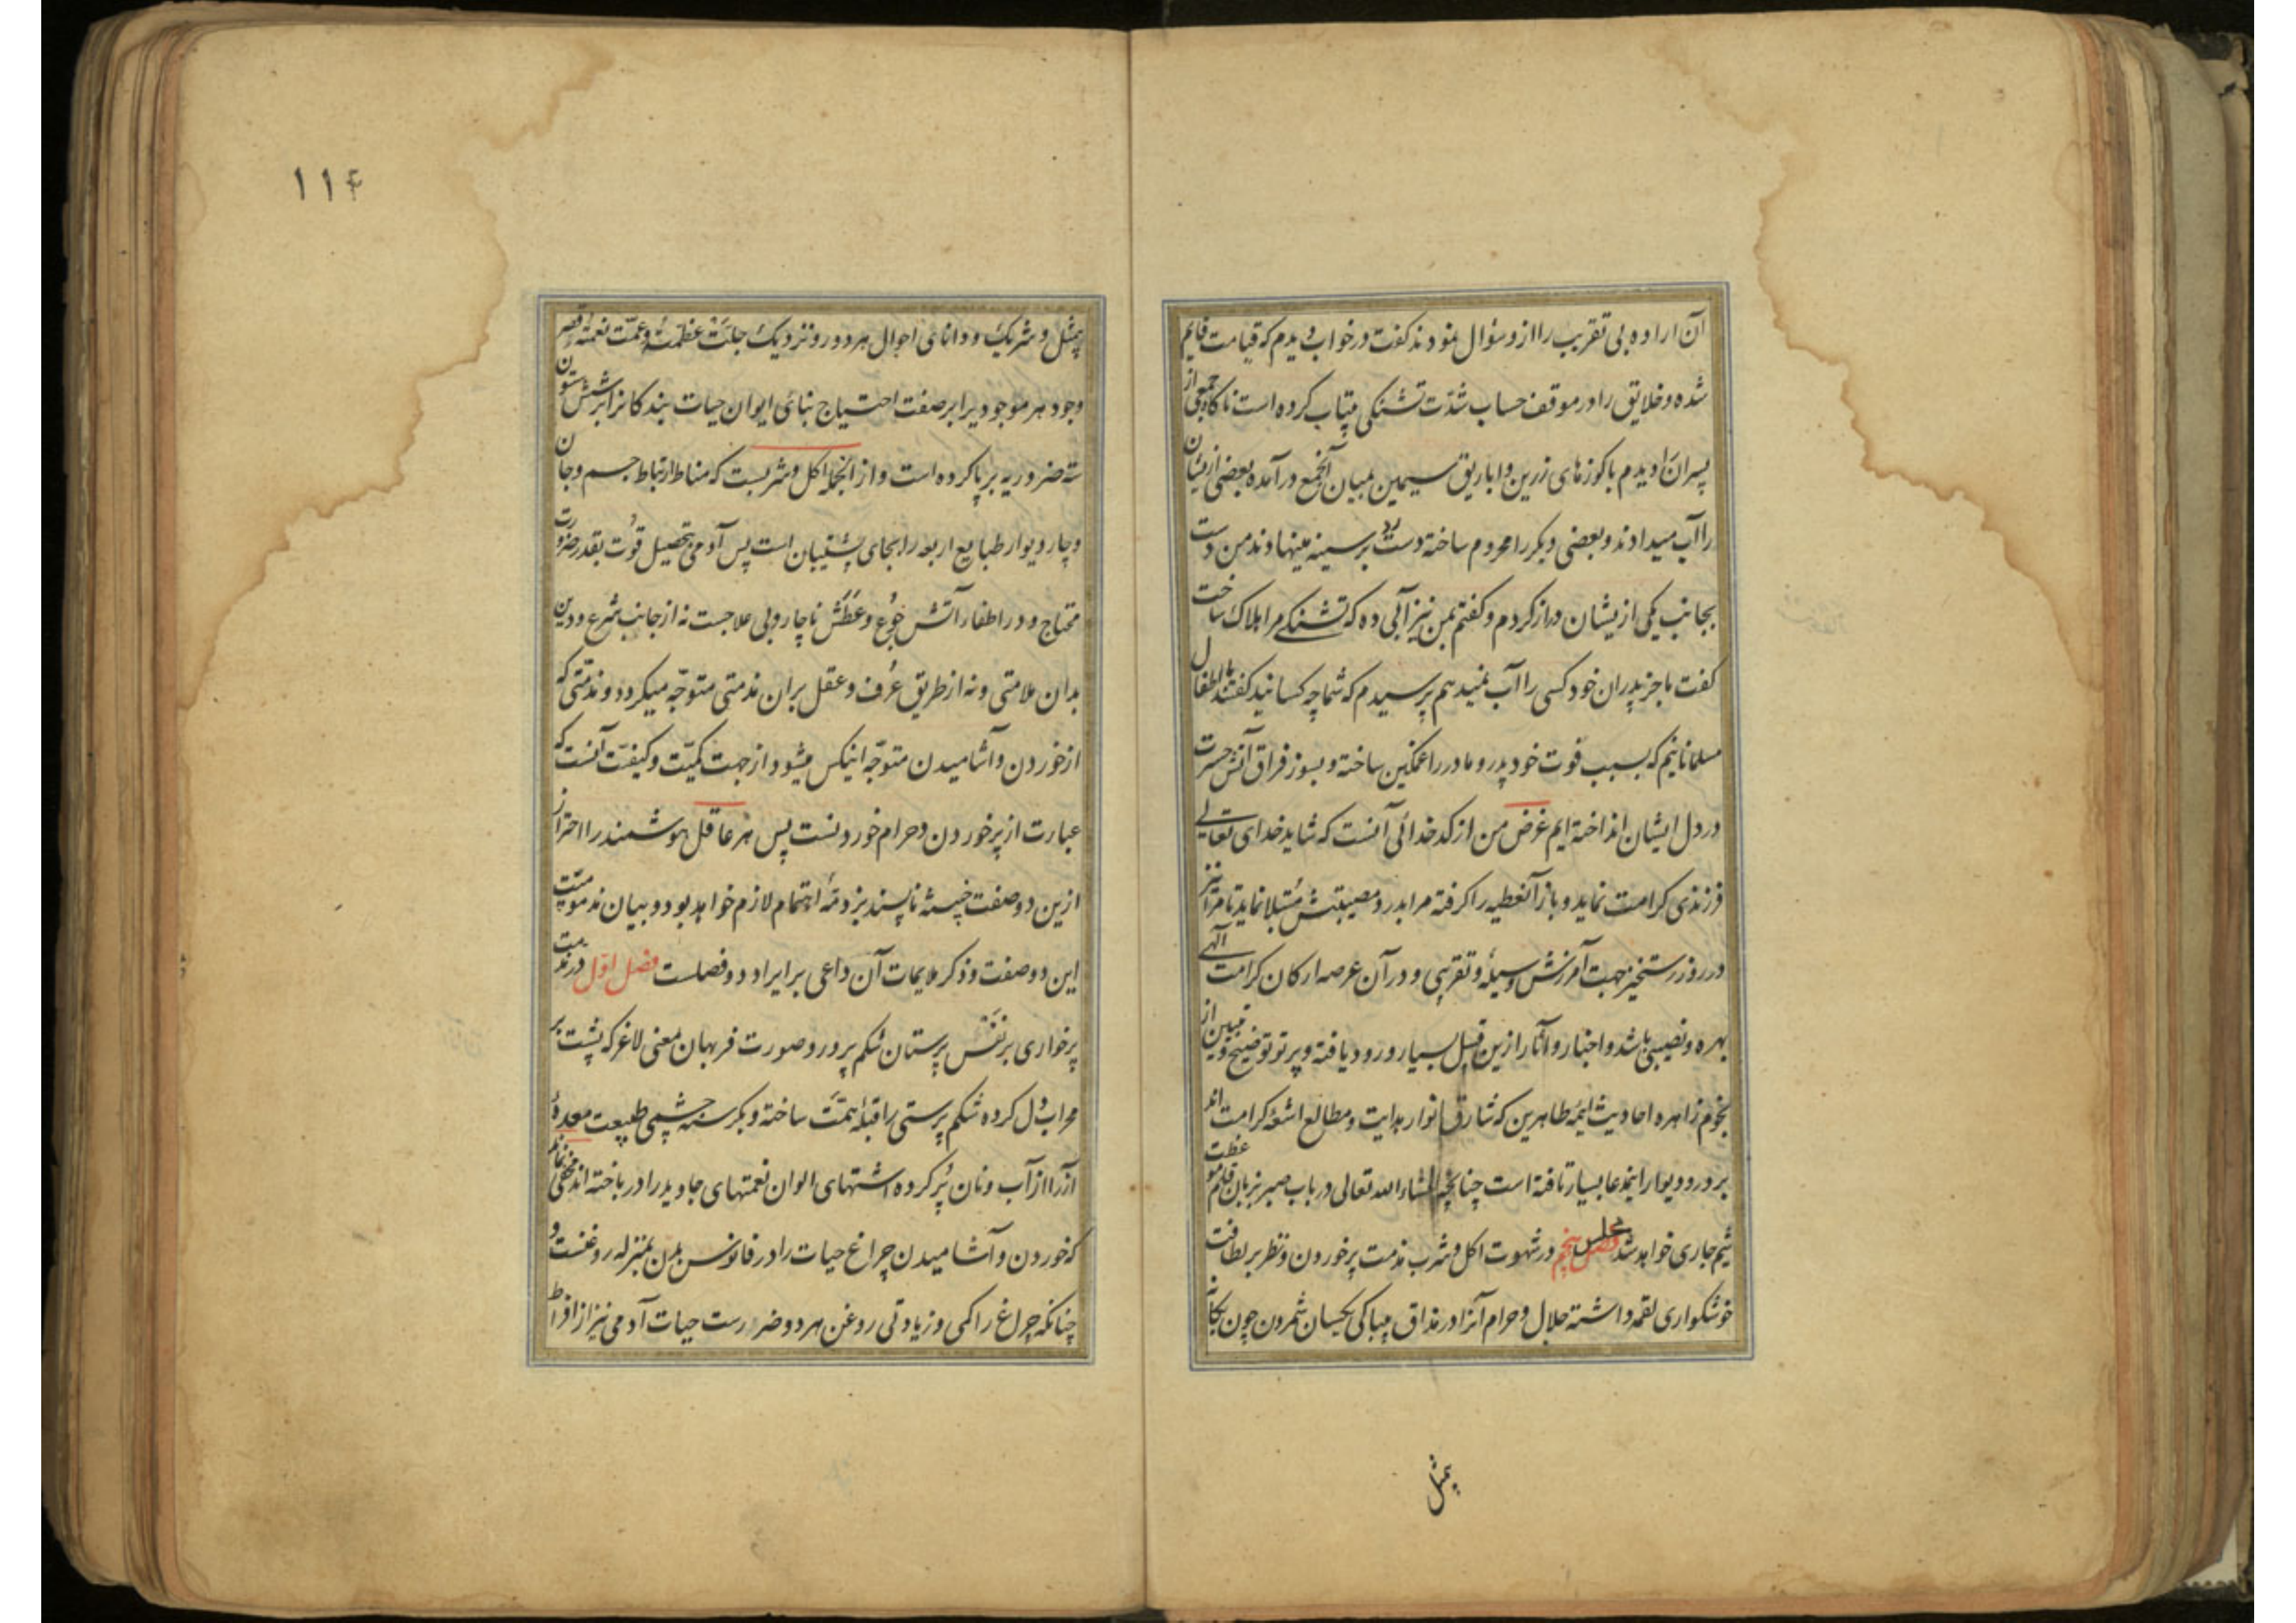 آن اراده بی تقریب را ازو سؤال نمودند کفت در خواب دیدم که قیامت قایم
شده و خلایق را در موقف حساب شدّت تشنکی بیتاب کرده است ناکاه جمعی از
پسران را دیدم با کوزهای زرین و اباریق سیمین بمیان آنجمع درآمده بعضی ازیشان
را آب میدادند و بعضی دیکر را محروم ساخته دست رد بر سینه مینهادند من دست
بجانب یکی ازیشان دراز کردم و کفتم بمن نیز آبی ده که تشنکی مرا هلاک ساخت
کفت ما جز پدران خود کسی را آب نمیدهیم پرسیدم که شما چه کسانید کفتند ما اطفال
مسلمانانیم که بسبب فوت خود پدر و مادر را غمکین ساخته و بسوز فراق آتش حسرت
در دل ایشان انداخته ایم غرض من از کدخدائی آنست که شاید خدای تعالی
فرزندی کرامت نماید و باز آنعطیه را کرفته مرا بدرد مصیبتش مبتلا نماید تا مرا نیز
در روز رستخیز جهت آمرزش وسیلهٔ و تقربی و در آن عرصه ارکان کرامت الهی
بهره و نصیبی باشد و اخبار و آثار ازین قبیل بسیار ورود یافته و پرتو توضیح و تبیین از
نجوم زاهره احادیث ائمه طاهرین که مشارق انوار هدایت و مطالع اشعهٔ کرامت اند
بر در و دیوار اینمدعا بسیار تافته است چنانچه انشاءالله تعالی در باب صبر بزبان قلم موعظت
شیم جاری خواهد شد مجلس پنجم در شهوت اکل و شرب مذمت پرخوردن و نظر بر لطافت
خوشکواری لقمه داشته حلال و حرام آنرا در مذاق بیباکی یکسان شمردن چون یکانه
بیمثل
۱۱۴
بیمثل و شریک و دانای احوال هر دور و نزدیک جلّت عظمته و عمّت نعمته قصر
وجود هر موجودیرا بر صفت احتیاج بنای ایوان حیات بندکانرا بر شش ستون
سته ضروریه برپا کرده است و از آنجمله اکل و شربست که مناط ارتباط جسم و جان
و چار دیوار طبایع اربعه را بجای پشتیبان است پس آدمی بتحصیل قوت بقدر ضرورت
محتاج و در اطفاء آتش جوع و عطش ناچار و بی علاجست نه از جانب شرع و دین
بدان ملامتی و نه از طریق عرف و عقل بران مذمتی متوجّه میکردد و مذمّتی که
از خوردن و آشامیدن متوجّه اینکس میشود از جهت کمیّت و کیفیّت آنست که
عبارت از پرخوردن و حرام خوردنست پس هر عاقل هوشمند را احتراز
ازین دو صفت خبیثه ناپسند بر ذمّهٔ اهتمام لازم خواهد بود و بیان مذمومیّت
این دو صفت و ذکر ملایمات آن داعی بر ایراد دو فصلست فصل اوّل در مذمت
پرخواری بر نفس پرستان شکم پرور و صورت فربهان معنی لاغر که پشت بر
محراب دل کرده شکم پرستی را قبلهٔ همّت ساخته و بکرسنه چشمی طبیعت معدهٔ
آز را از آب و نان پُر کرده اشتهای الوان نعمتهای جاوید را در باخته اند مخفی نماند
که خوردن و آشامیدن چراغ حیات را در فانوس بدن بمنزله روغنست و
چنانکه چراغ را کمی و زیادتی روغن هر دو ضررست حیات آدمی نیز از افراط